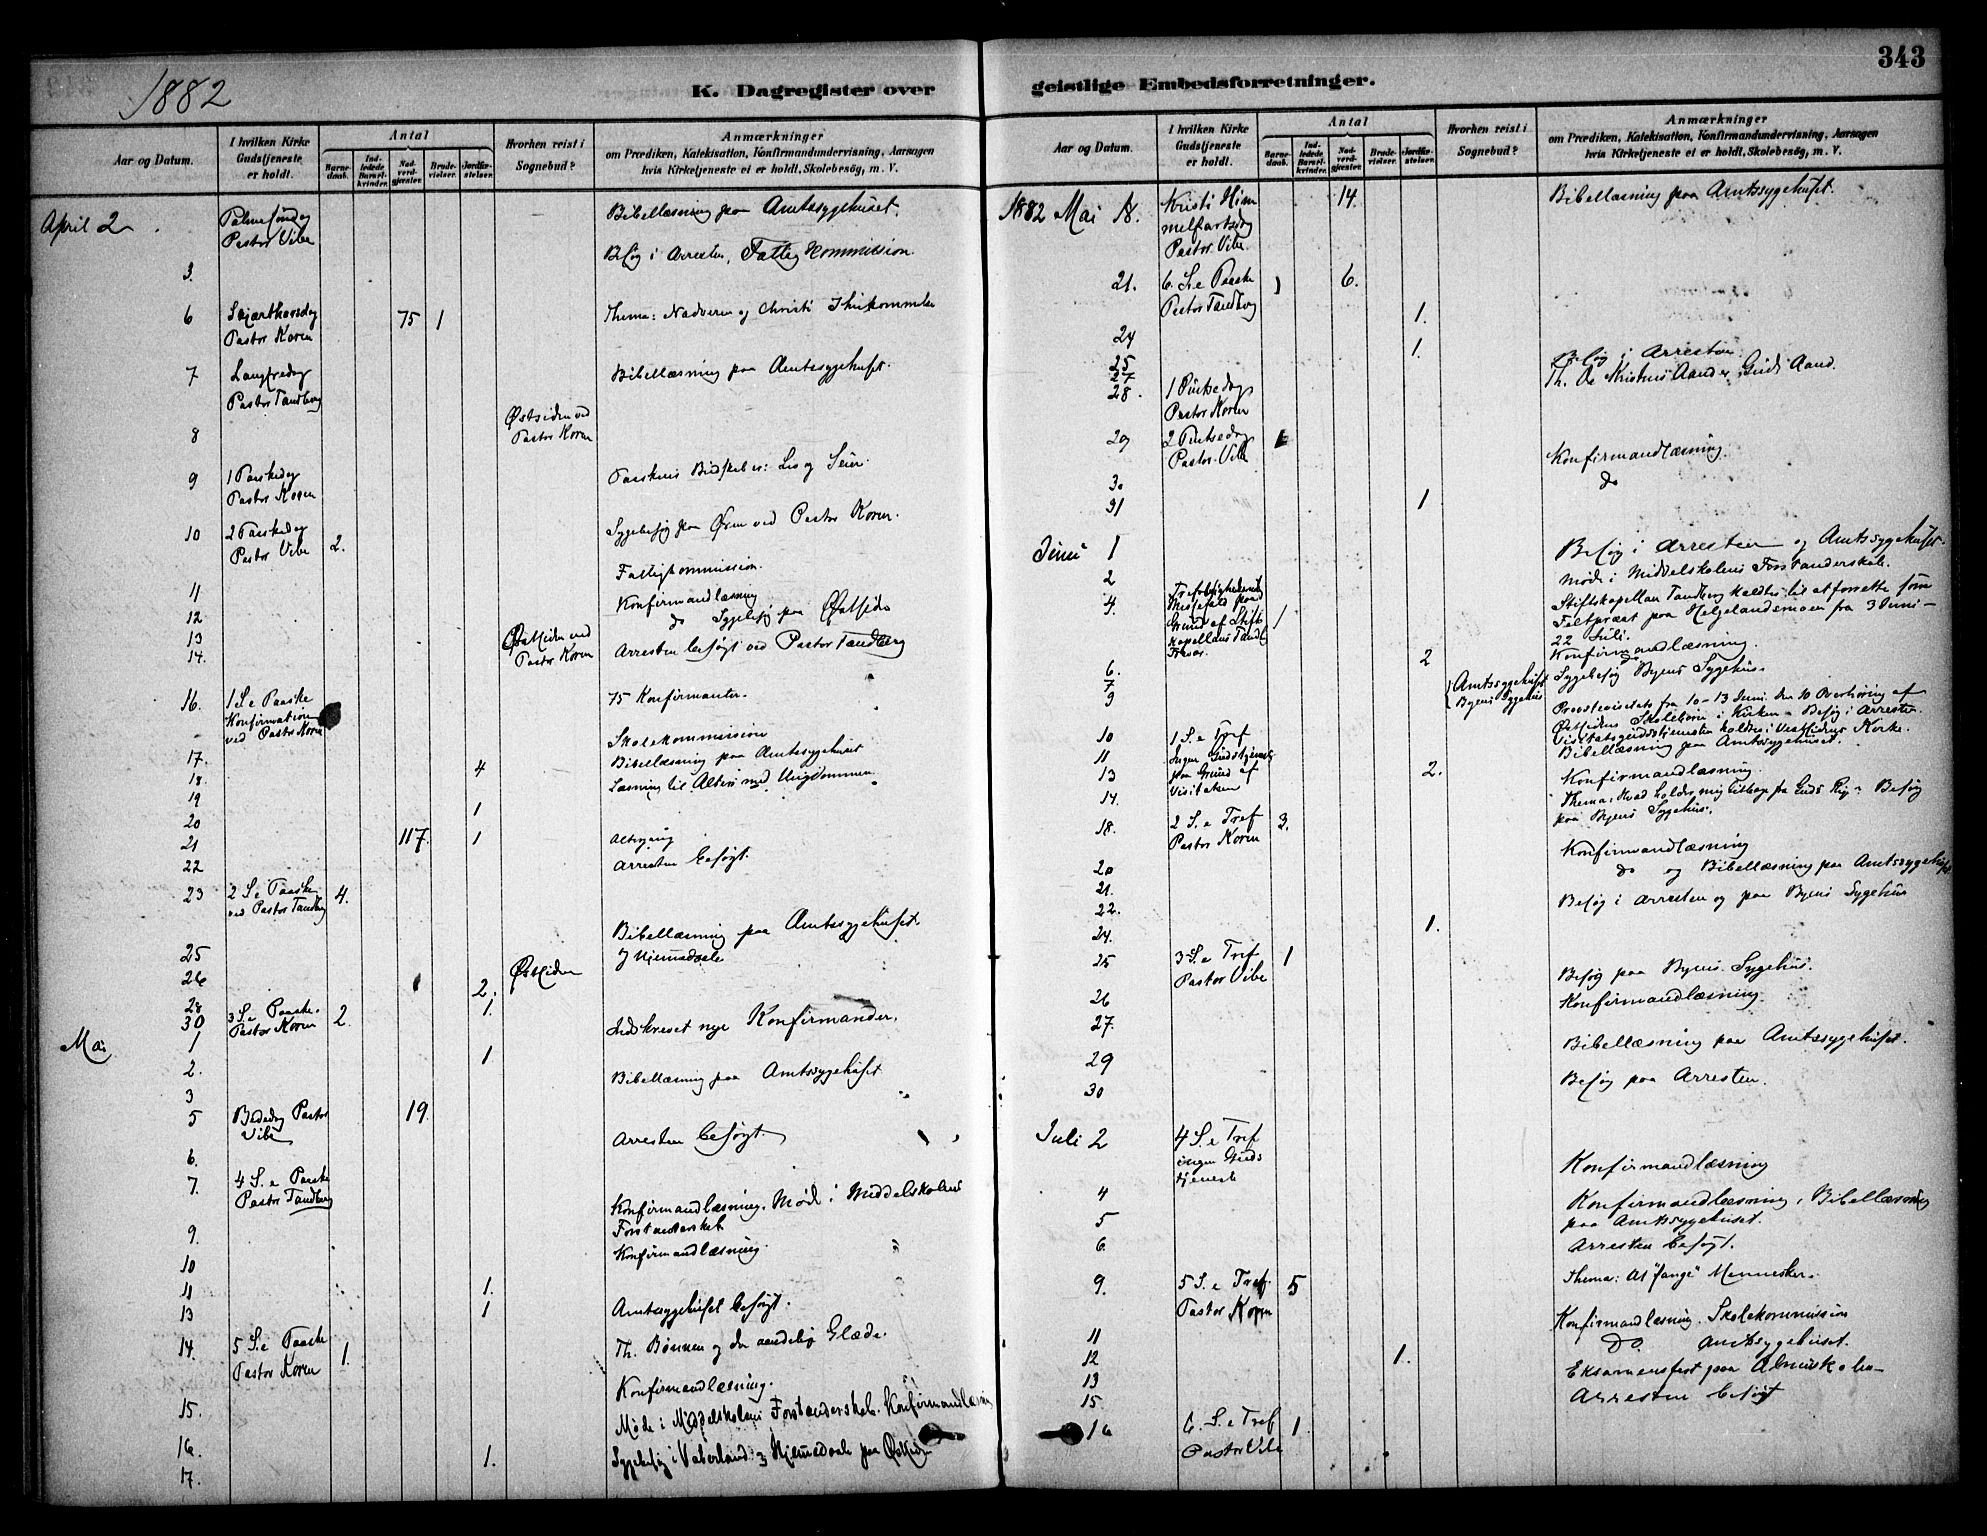 343
1882
K. Dagregister over
geistlige Embedsforretninger.
Aar og Datum.
I hvilken Kirke
Gudstjeneste
er holdt.
Antal
Barne-
daab.
Ind-
ledede
Barsel-
kvinder.
Nad-
verd-
gjæster.
Brude-
vielser.
Jordfæ-
stelser.
Hvorhen reist i
Sognebud?
Anmærkninger
om Prædiken, Katekisation, Konfirmandundervisning, Aarsagen
hvis Kirketjeneste ei er holdt, Skolebesög, m. V.
April 2
Palmesöndag
Pastor Vibe
Bibellæsning paa Amtssygehuset.
3.
Besög i Arresten, Fattigkommission.
6 Skjærthorsdag 75 1
Pastor Koren
Thema: Nadveren og Christi
7 Langfredag
Pastor Tandberg
Bibellæsning paa Amtssygehuset.
8
Østsiden ved
Pastor Koren
9 1 Paaskedag
Pastor Koren
Paaskens Budskab er: Liv og Seier.
10 2 Paaskedag
Pastor Vibe 2.
Sygebesög paa Øren ved Pastor Koren.
Fattigkommission.
11 Konfirmandlæsning
12 do Sygebesög paa Østsiden
13
14.
Østsiden ved
Pastor Koren
Arresten besögt ved Pastor Tandberg
16. 1 S. e Paaske
Konfirmation
ved Pastor Koren
75 Konfirmanter.
Skolekommission
17. Bibellæsning paa Amtssygehuset
18 4 Læsning til Alters med Ungdommen
19
20 1
21 117. 1 Altergang
22 Arresten besögt.
23 2 S. e Paaske 4.
ved Pastor Tandberg
Bibellæsning paa Amtssygehuset.
25
26 Østsiden
28 2.
30 3 S. e Paaske. 2. 1.
Pastor Koren
Mai 1
Indskrevet nye Konfirmander.
2. 1
Bibellæsning paa Amtssygehuset
3
5 Bededag Pastor 19.
Vibe
Arresten besögt.
6.
7. 4 S. e Paaske
Pastor Tandberg
Konfirmandlæsning. Möde i Middelskolens
Forstanderskab
9. Konfirmandlæsning.
10
11 1.
13 1 Amtssygehuset besögt.
14. 5 S. e Paaske 1.
Pastor Koren
Th. Bönnen og den aandelig Glæde.
Konfirmandlæsning.
15. Möde i Middelskolens Forstanderskab. Konfirmandlæsning
16. 1. Sygebesög i Vaterland. 3 Hjemmedaab paa Østsiden
17.
Aar og Datum.
I hvilken Kirke
Gudstjeneste
er holdt.
Antal
Barne-
daab.
Ind-
ledede
Barsel-
kvinder.
Nad-
verd-
gjæster.
Brude-
vielser.
Jordfæ-
stelser.
Hvorhen reist i
Sognebud?
Anmærkninger
om Prædiken, Katekisation, Konfirmandundervisning, Aarsagen
hvis Kirketjeneste ei er holdt, Skolebesög, m. V.
1882 Mai 18. Kristi Him 14.
melfartsdag
Pastor Vibe.
Bibellæsning paa Amtssygehuset.
21. 6. S. e Paaske 1 6.
Pastor Tandberg
24 1.
25 1.
Besög i Arresten
27
28. 1 Pintsedag
Pastor Koren
Th. De Kristnes Aand er Guds Aand.
29 2 Pintsedag
Pastor Vibe
Konfirmandlæsning.
30 do
31 1
Juni 1
Besög i Arresten og Amtssygehuset.
2 Möde i Middelskolens Forstanderskab.
4.
Messefald paa
Grund af Stifts
kapellan Tandb 1
Stiftskapellan Tandberg kaldtes til at forrette som
Feltpræst paa Helgelandsmoen fra 3 Juni –
22 Juli.
Konfirmandlæsning.
6. 2
do
7 Sygebesög Byens Sygehus.
9
Amtssygehuset
Byens Sygehus
Provstevisitats fra 10–13 Juni. Den 10 Overhöring af
Østsidens Skolebörn i Kirken – Besög i Arresten.
10 1 S. e Tref
11 Ingen Gudstjeneste
13 paa Grund af 2.
14. Visitatsen
Visitatsgudstjenesten holdtes i Vestsidens Kirke.
Bibellæsning paa Amtssygehuset.
Konfirmandlæsning.
18. 2 S. e Tref 3.
Pastor Koren
Thema: Hvad holder mig tilbage fra Guds Rige – Besög
paa Byens Sygehus.
20 Konfirmandlæsning
21. do og Bibellæsning paa Amtssygehuset
22. Besög i Arresten og paa Byens Sygehus
24. 1.
25 3 S. e Tref 1
Pastor Vibe
26 Besög paa Byens Sygehus.
27. Konfirmandlæsning
29 Bibellæsning paa Amtssygehuset.
30 Besög paa Arresten.
Juli 2 4 S. e Tref
ingen Guds
tjeneste
4 Konfirmandlæsning
5 Konfirmandlæsning, Bibellæsning
paa Amtssygehuset.
6 Arresten besögt.
9. 5 S. e Tref. 5
Pastor Koren
Thema: At "fange" Mennesker.
11 Konfirmandlæsning. Skolekommission
12 1. Do. Amtssygehuset.
13 Eksamensfest paa Almuskolen
15. Arresten besögt
16 6. S. e Tref 1
Pastor Vibe